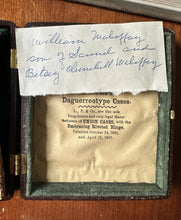 William Mehaffey
son of Samuel and
Betsey Churchill Mehaffey
Daguerreotype Cases.
L., P. & Co. are the sole
Proprietors and only legal Manu-
facturers of UNION CASES, with the
Embracing Riveted Hinge.
Patented October 14, 1856,
and April 21, 1857.